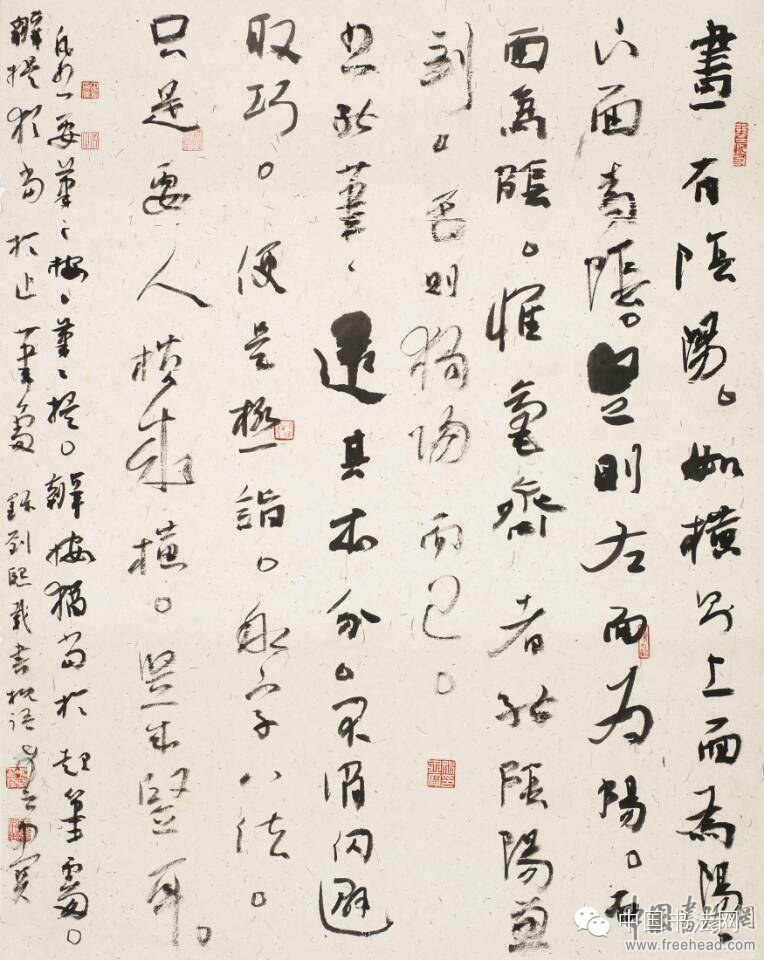 畫有陰陽。如橫則上面為陽。
下面為陰。豎則左面為陽。右
面為陰。惟毫齊者能陰陽兼
到。否則獨陽而已。
書能筆〻還其本分。不消閃避
取巧。便是極詣。永字八法。
只是要人橫成橫。豎成豎耳。
凡書要筆〻按。筆〻提。辨按猶當於起筆處。
辨提猶當於止筆處 錄劉熙載書概語
中国书法网
www.freehead.com